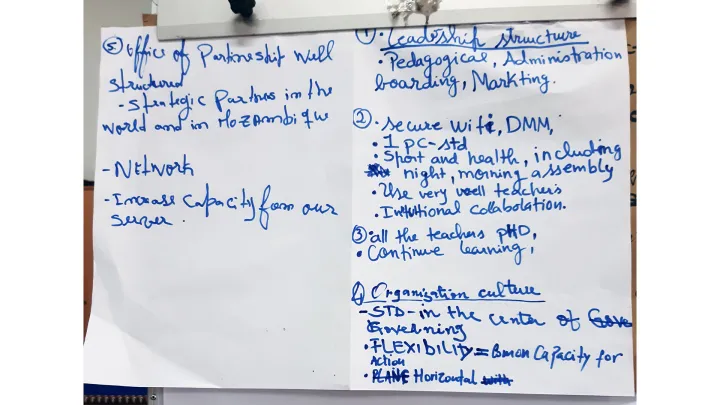 ⑤ Office of Partineship Well
structured
- Strategic Partines in the
world and in Mozambique
- Network
- Increase Capacity from our
server.
1) • Leadeship structure
• Pedagogical, Administration
boarding, Markting.
② • Secure Wifi, DMM,
• 1 PC-std
• Sport and health, including
night, morning assembly
• Use very well teachers
• Intutional collabolation.
③ • all the teachers PHD,
• Continue learning,
4) Organisation culture
- STD - in the center of Gove
Governing
• FLEXIBILITY = Capacity for
Action
• PLANE Horizontal with